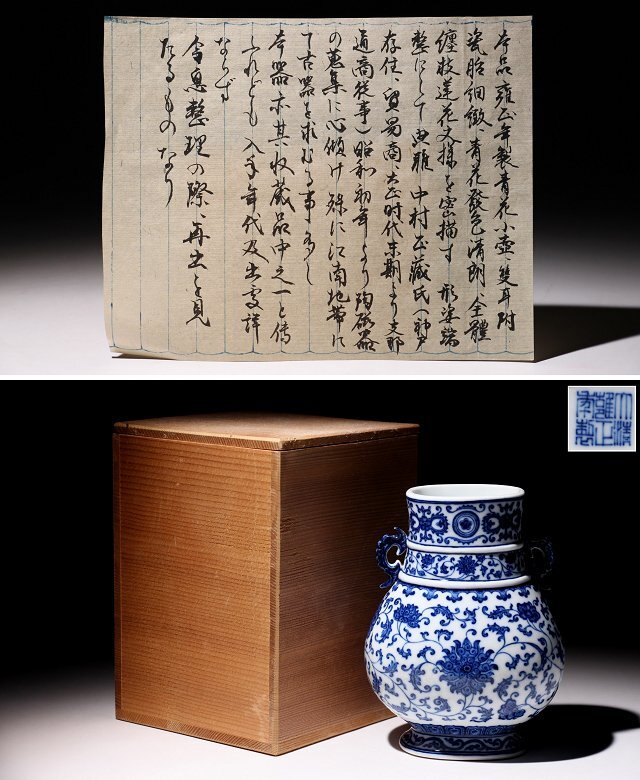 本品雍正年製青花小壺、雙耳附
瓷胎細緻、青花發色清朗、全體
纏枝蓮花文様を密描す 形姿端
整にして典雅 中村吉藏氏（神戸
存住、貿易商、大正時代末期より支那
通商従事）昭和初年より陶磁器
の蒐集に心傾け殊に江南地帯に
て古器を求むる事多し
本器亦其収蔵品中之一と傳
ふれども 入手年代及出處詳
ならず
今息整理の際、再出を見
たるものなり
大清
雍正
年製